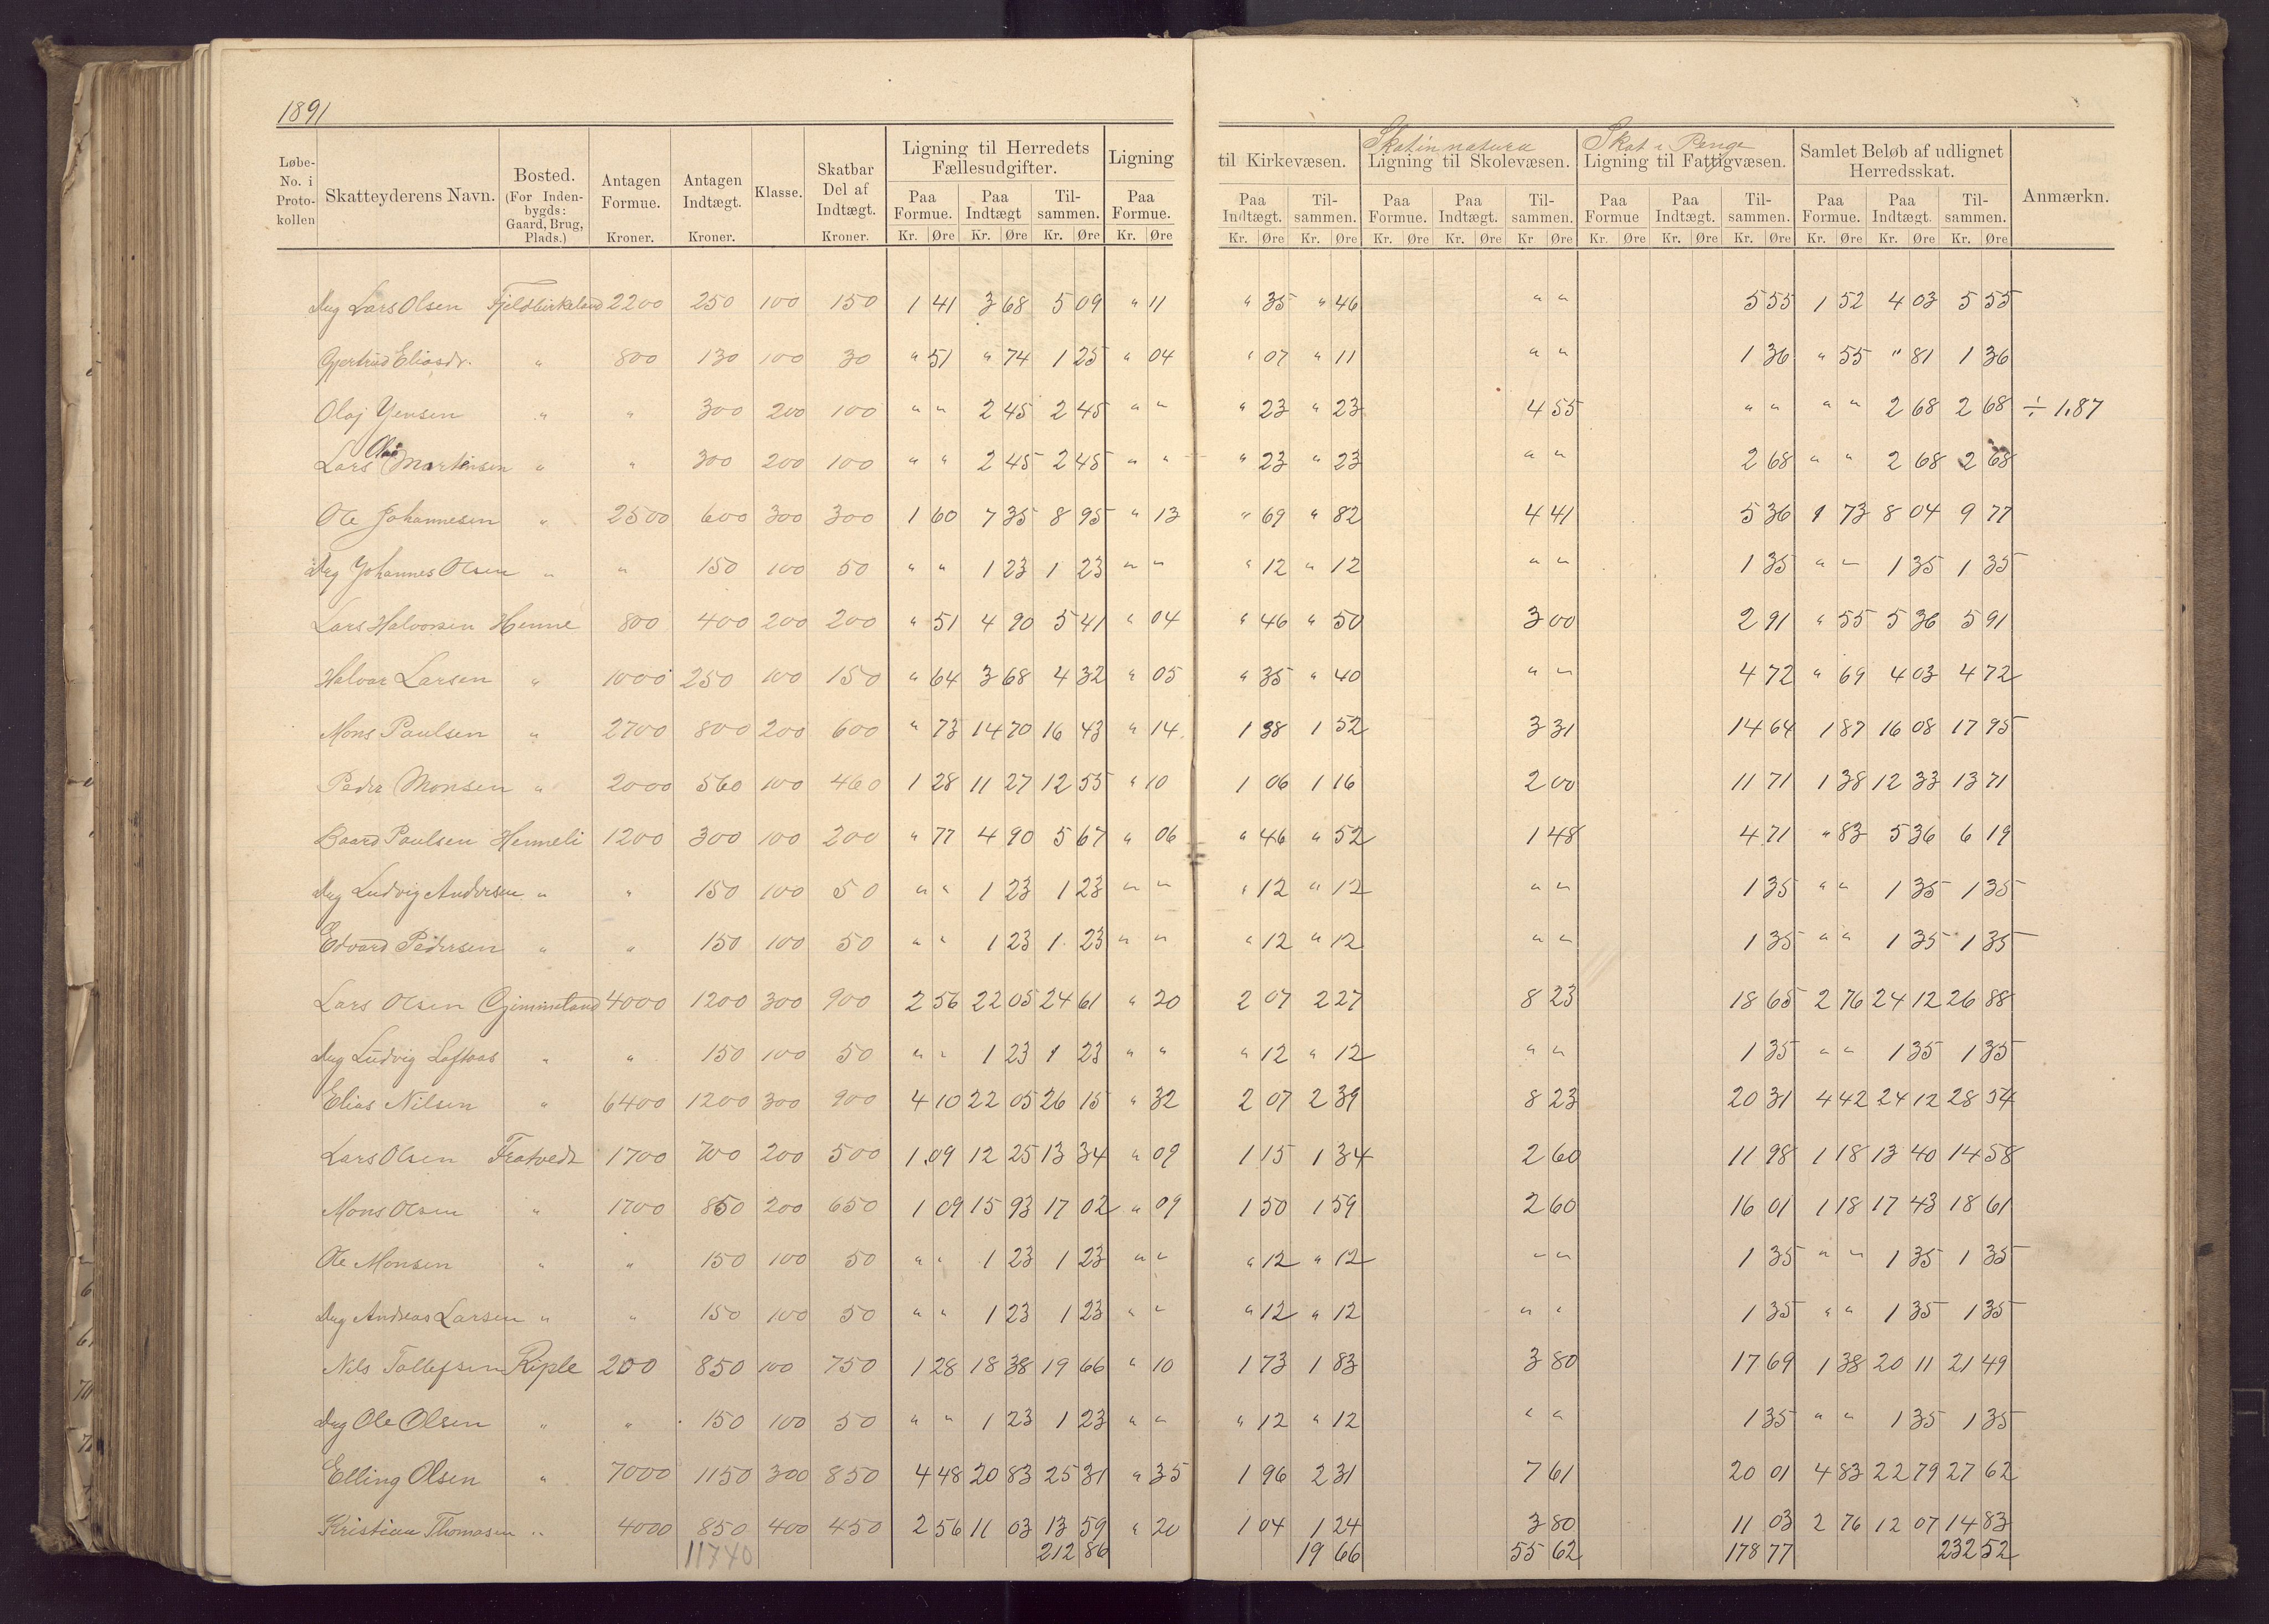 1891
Løbe-No. i Proto-kollen | Skatteyderens Navn. | Bosted. (For Inden-bygds: Gaard, Brug, Plads.) | Antagen Formue. Kroner. | Antagen Indtægt. Kroner. | Klasse. | Skatbar Del af Indtægt. Kroner. | Ligning til Herredets Fællesudgifter. Paa Formue. Kr. Øre | Paa Indtægt Kr. Øre | Til-sammen. Kr. Øre | Ligning Paa Formue. Kr. Øre | til Kirkevæsen. Paa Indtægt. Kr. Øre | Til-sammen. Kr. Øre | Skat in natura Ligning til Skolevæsen. Paa Formue. Kr. Øre | Paa Indtægt. Kr. Øre | Til-sammen. Kr Øre | Skat i Penge Ligning til Fattigvæsen. Paa Formue Kr. Øre | Paa Indtægt. Kr. Øre | Til-sammen. Kr. Øre | Samlet Beløb af udlignet Herredsskat. Paa Formue. Kr. Øre | Paa Indtægt. Kr. Øre | Til-sammen. Kr. Øre | Anmærkn.
Lars Olsen Fjeldbirkeland 2200 250 100 150 1 41 3 68 5 09 " 11 " 35 " 46 " " 5 55 1 52 4 03 5 55
Gjertrud Eliasdr. " 800 130 100 30 " 51 " 74 1 25 " 04 " 07 " 11 " " 1 36 " 55 " 81 1 36
Olaj Yensen " " 300 200 100 " " 2 45 2 45 " " " 23 " 23 4 55 " " " " 2 68 2 68 ÷ 1,87
Lars Martinsen " " 300 200 100 " " 2 45 2 45 " " " 23 " 23 " " 2 68 " " 2 68 2 68
Ole Johannesen " 2500 600 300 300 1 60 7 35 8 95 " 13 " 69 " 82 4 41 5 36 1 73 8 04 9 77
Johannes Olsen " " 150 100 50 " " 1 23 1 23 " " " 12 " 12 " " 1 35 " " 1 35 1 35
Lars Halvorsen Henne 800 400 200 200 " 51 4 90 5 41 " 04 " 46 " 50 3 00 2 91 " 55 5 36 5 91
Halvor Larsen " 1000 250 100 150 " 64 3 68 4 32 " 05 " 35 " 40 " " 4 72 " 69 4 03 4 72
Mons Paulsen " 2700 800 200 600 " 73 14 70 16 43 " 14 1 38 1 52 3 31 14 64 1 87 16 08 17 95
Peder Monsen " 2000 560 100 460 1 28 11 27 12 55 " 10 1 06 1 16 2 00 11 71 1 38 12 33 13 71
Baard Paulsen Henneli 1200 300 100 200 " 77 4 90 5 67 " 06 " 46 " 52 1 48 4 71 " 83 5 36 6 19
Ludvig Andersen " " 150 100 50 " " 1 23 1 23 " " " 12 " 12 " " 1 35 " " 1 35 1 35
Edvard Pedersen " " 150 100 50 " " 1 23 1 23 " " " 12 " 12 " " 1 35 " " 1 35 1 35
Lars Olsen Gjimmeland 4000 1200 300 900 2 56 22 05 24 61 " 20 2 07 2 27 8 23 18 65 2 76 24 12 26 88
Ludvig Loftaas " " 150 100 50 " " 1 23 1 23 " " " 12 " 12 " " 1 35 " " 1 35 1 35
Elias Nilsen " 6400 1200 300 900 4 10 22 05 26 15 " 32 2 07 2 39 8 23 20 31 4 42 24 12 28 54
Lars Olsen Tratvedt 1700 700 200 500 1 09 12 25 13 34 " 09 1 15 1 34 2 60 11 98 1 18 13 40 14 58
Mons Olsen " 1700 850 200 650 1 09 15 93 17 02 " 09 1 50 1 59 2 60 16 01 1 18 17 43 18 61
Ole Monsen " " 150 100 50 " " 1 23 1 23 " " " 12 " 12 " " 1 35 " " 1 35 1 35
Andreas Larsen " " 150 100 50 " " 1 23 1 23 " " " 12 " 12 " " 1 35 " " 1 35 1 35
Nils Tollefsen Riple 200 850 100 750 1 28 18 38 19 66 " 10 1 73 1 83 3 80 17 69 1 38 20 11 21 49
Ole Olsen " " 150 100 50 " " 1 23 1 23 " " " 12 " 12 " " 1 35 " " 1 35 1 35
Elling Olsen " 7000 1150 300 850 4 48 20 83 25 31 " 35 1 96 2 31 7 61 20 01 4 83 22 79 27 62
Kristian Thomasen " 4000 850 400 450 2 56 11 03 13 59 " 20 1 04 1 24 3 80 11 03 2 76 12 07 14 83
11740 212 86 19 66 55 62 178 77 232 52